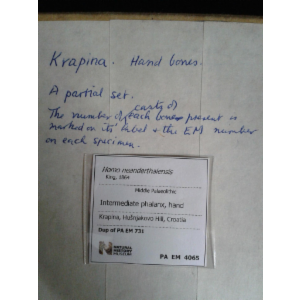 Krapina. Hand bones.
A partial set.
casts of
The number of each bones present is
marked on its label & the EM number
on each specimen.
Homo neanderthalensis
King, 1864
Middle Palaeolithic
Intermediate phalanx, hand
Krapina, Hušnjakovo Hill, Croatia
Dup of PA EM 731
NATURAL
HISTORY
MUSEUM
PA EM 4065